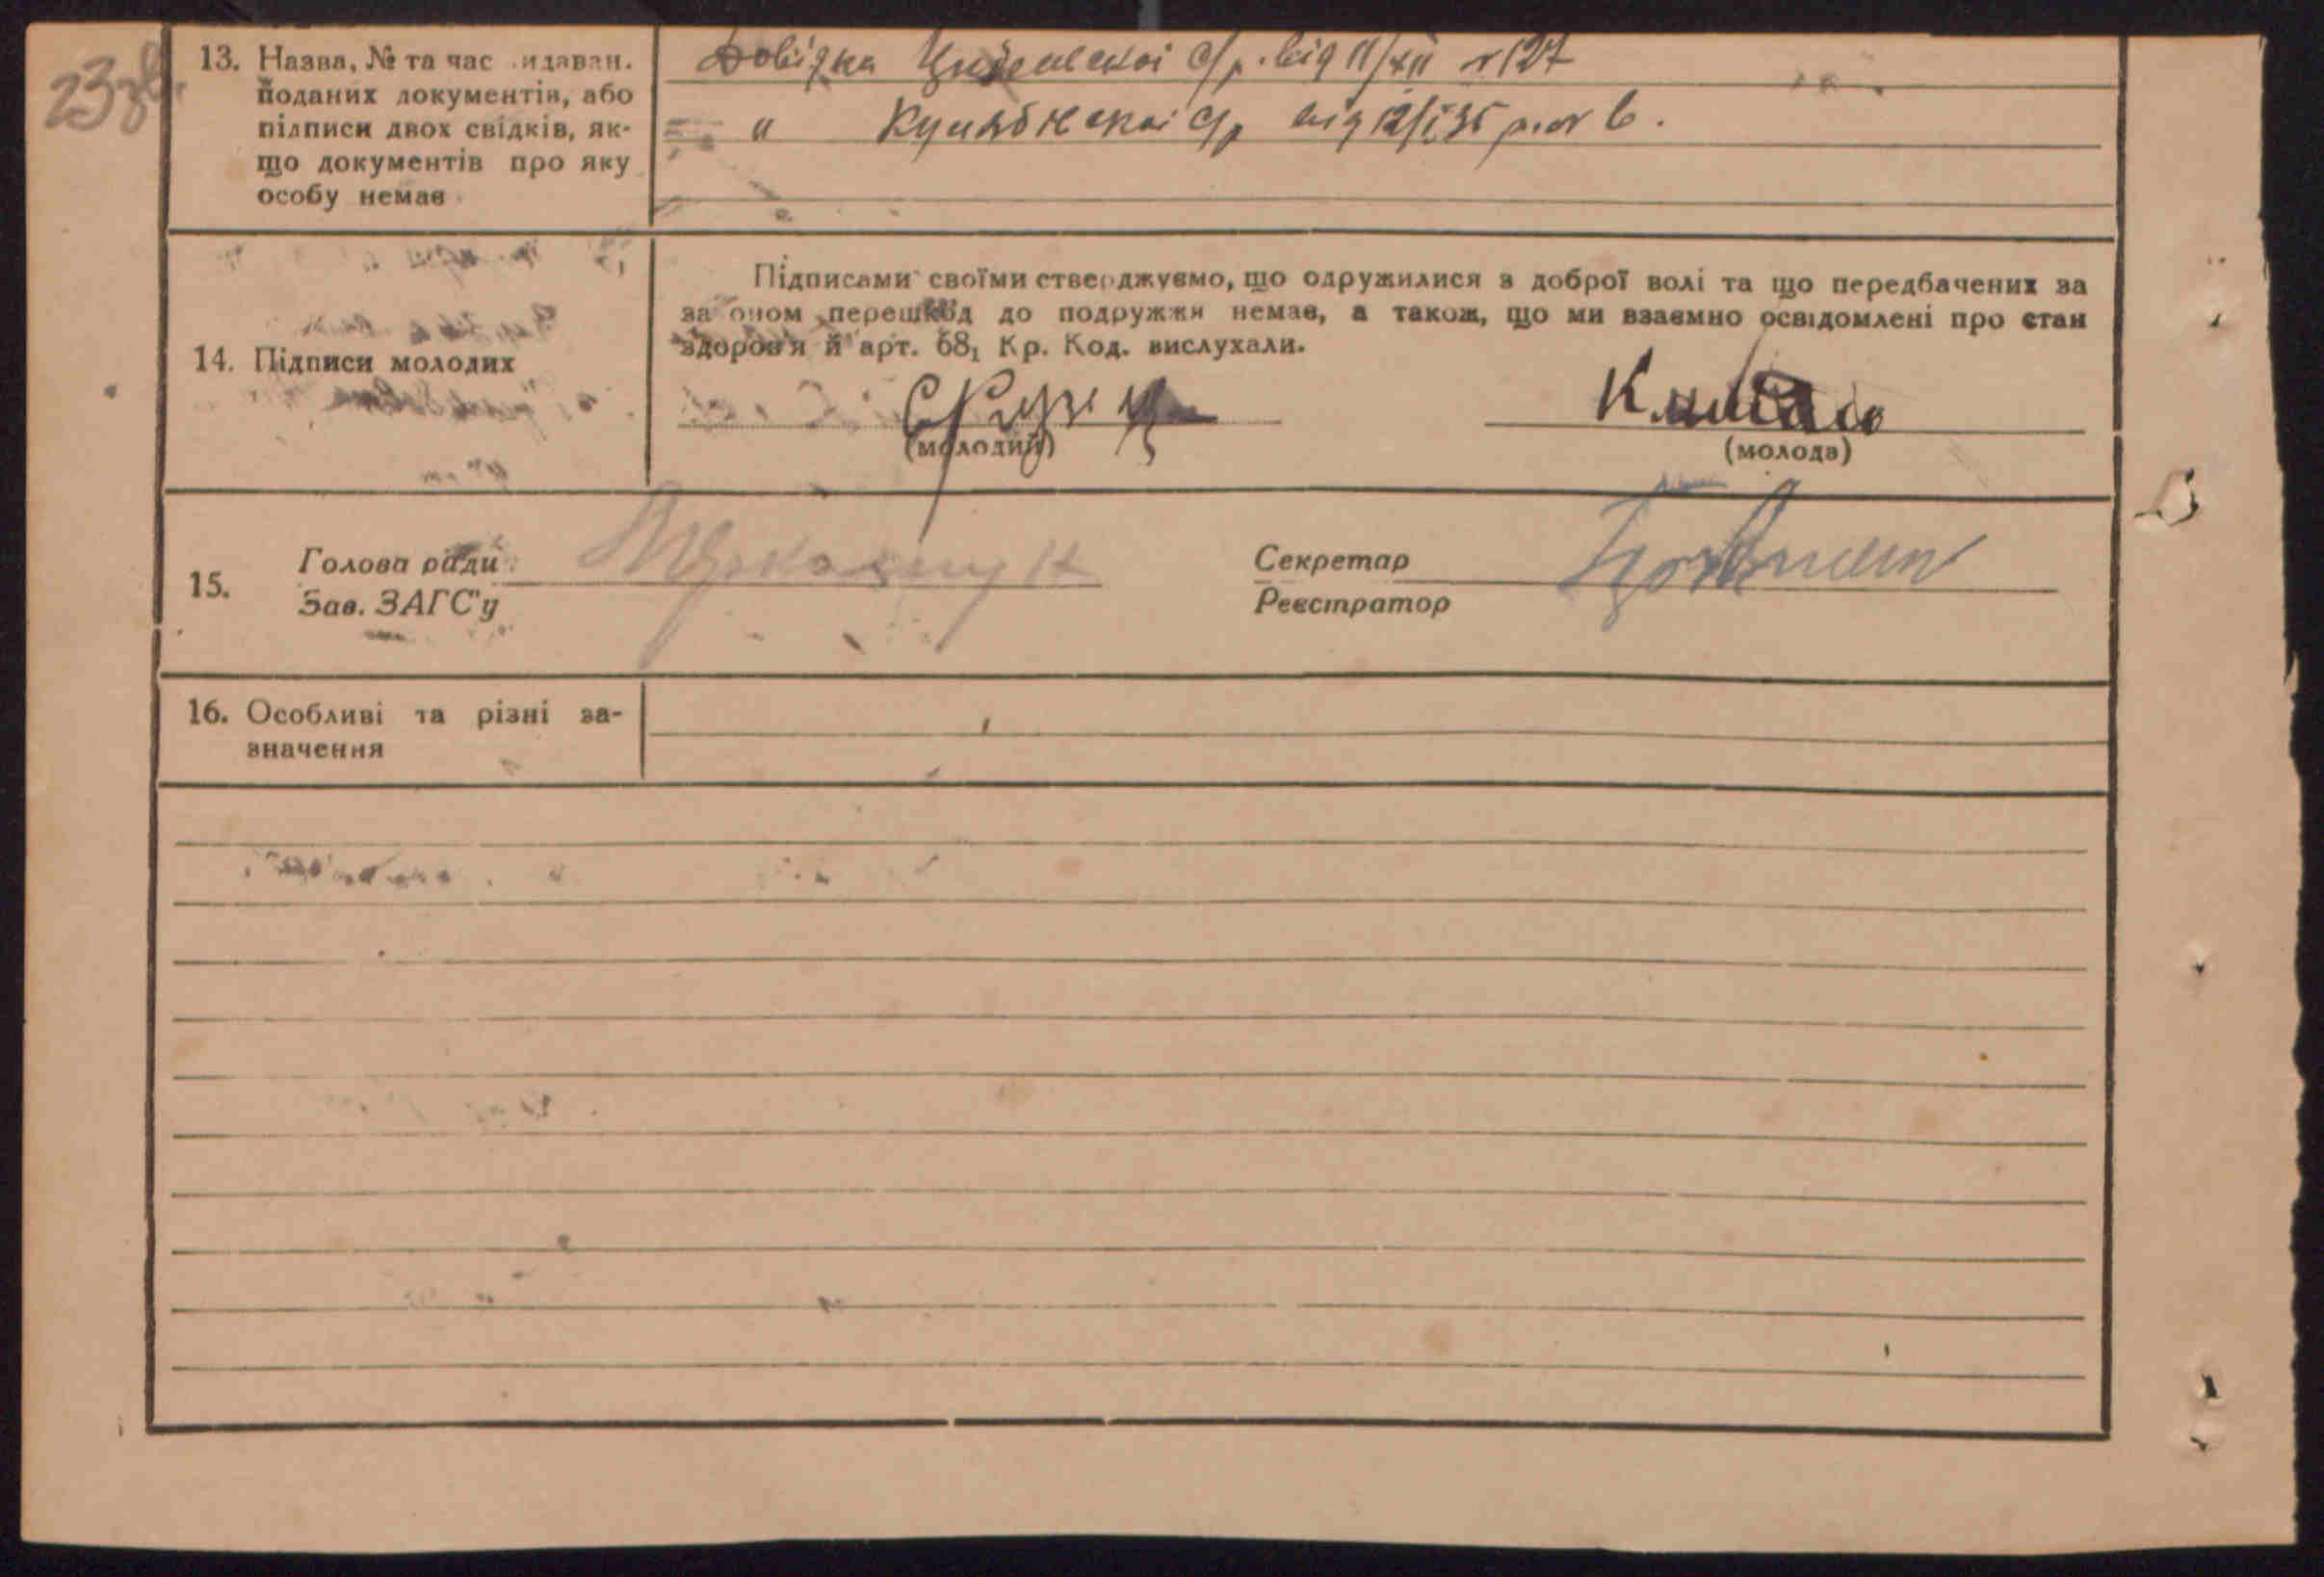 23зв.
13. Назва, № та час видаван.
поданих документів, або
підписи двох свідків, як-
що документів про яку
особу немає
Довідка с/р. від 11/XII № 127
" с/р від 12/I 35 р. № 6.
14. Підписи молодих
Підписами своїми стверджуємо, що одружилися з доброї волі та що передбачених за
за оном перешкод до подружжя немає, а також, що ми взаємно освідомлені про стан
здоров'я й арт. 68₁ Кр. Код. вислухали.
(молодий)
(молода)
15.
Голова ради
Зав. ЗАГС'у
Секретар
Реєстратор
16. Особливі та різні за-
значення